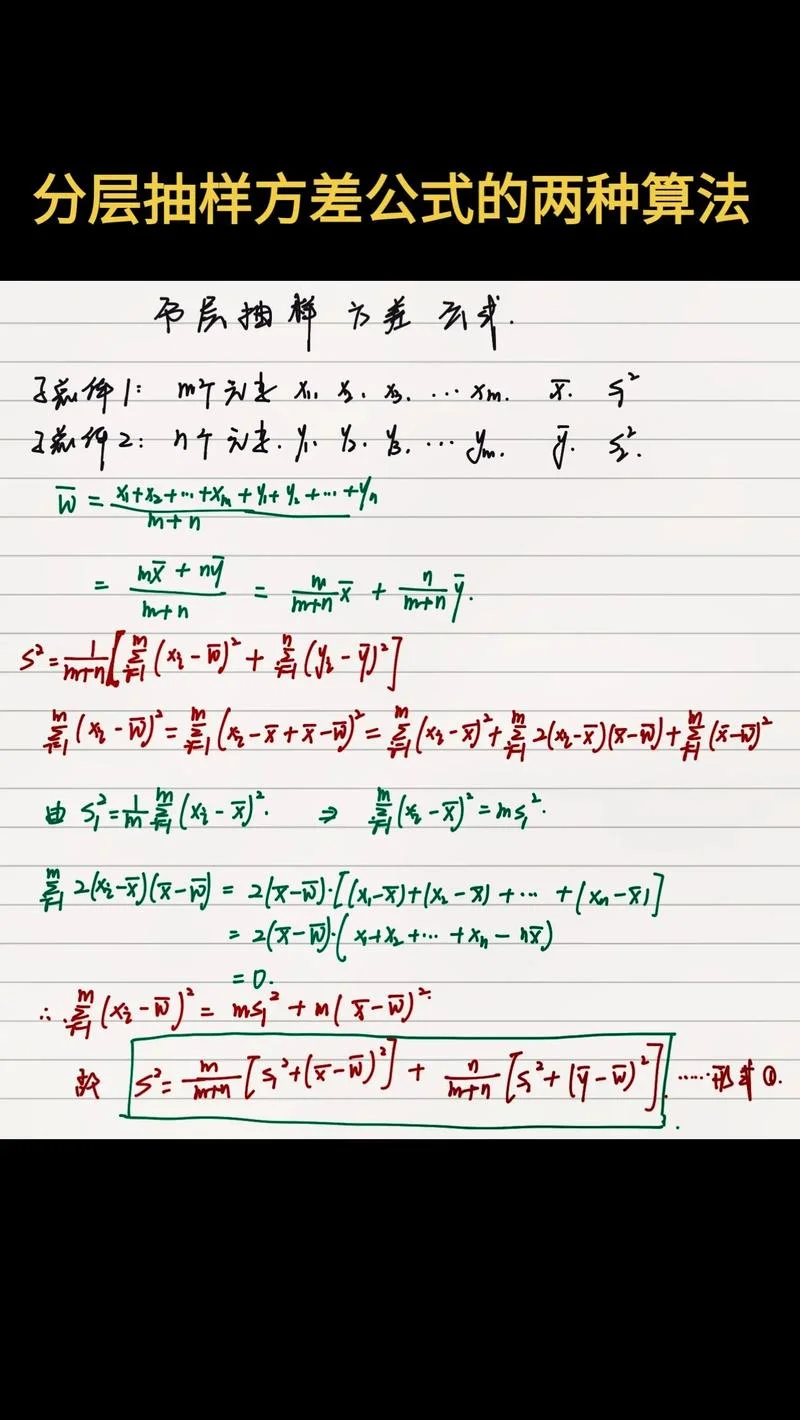 分层抽样方差公式的两种算法
分层抽样方差公式.
子总体1: m个元素 x₁, x₂, x₃, ⋯ xₘ. x̄. s₁²
子总体2: n个元素. y₁, y₂, y₃, ⋯ yₘ. ȳ. s₂².
w̄ = (x₁+x₂+⋯+xₘ+y₁+y₂+⋯+yₙ)/(m+n)
= (mx̄ + nȳ)/(m+n) = m/(m+n) x̄ + n/(m+n) ȳ.
s² = 1/(m+n) [∑ᵢ₌₁ᵐ (xᵢ - w̄)² + ∑ᵢ₌₁ⁿ (yᵢ - ȳ)²]
∑ᵢ₌₁ᵐ (xᵢ - w̄)² = ∑ᵢ₌₁ᵐ (xᵢ - x̄ + x̄ - w̄)² = ∑ᵢ₌₁ᵐ (xᵢ - x̄)² + ∑ᵢ₌₁ᵐ 2(xᵢ - x̄)(x̄ - w̄) + ∑ᵢ₌₁ᵐ (x̄ - w̄)²
由 s₁² = 1/m ∑ᵢ₌₁ᵐ (xᵢ - x̄)². ⇒ ∑ᵢ₌₁ᵐ (xᵢ - x̄)² = ms₁².
∑ᵢ₌₁ᵐ 2(xᵢ - x̄)(x̄ - w̄) = 2(x̄ - w̄)·[(x₁ - x̄) + (x₂ - x̄) + ⋯ + (xₙ - x̄)]
= 2(x̄ - w̄)·(x₁ + x₂ + ⋯ + xₙ - nx̄)
= 0.
∴ ∑ᵢ₌₁ᵐ (xᵢ - w̄)² = ms₁² + m(x̄ - w̄)².
故 s² = m/(m+n) [s₁² + (x̄ - w̄)²] + n/(m+n) [s₁² + (ȳ - w̄)²]. ⋯⋯形式①.